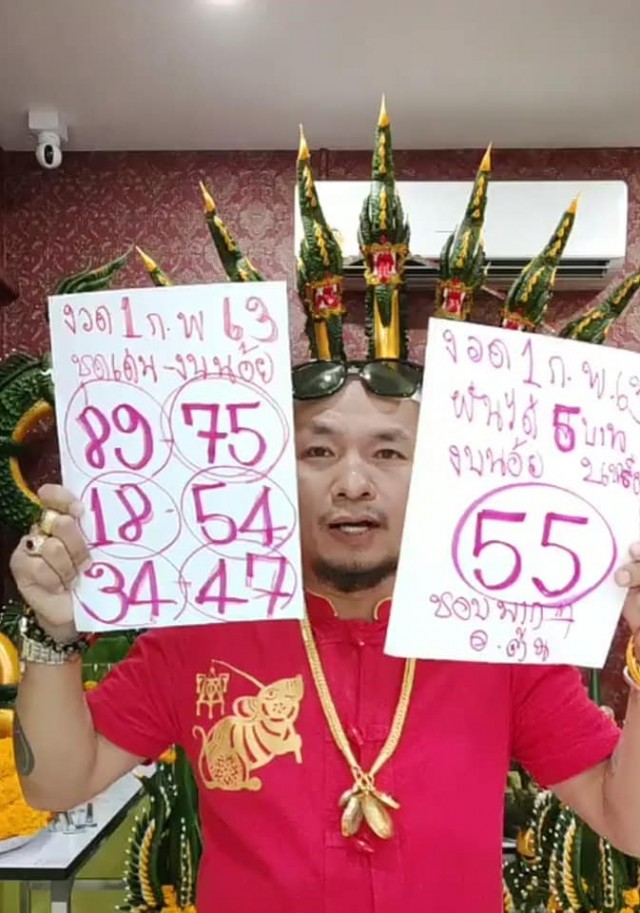 งวด 1 ก.พ 63
ชุดเด่น-งบน้อย
89-75
18-54
34-47
งวด 1 ก.พ.6
พันได้ 5 บาท
งบน้อย
55
ชอบมากๆ
อ.ต้น